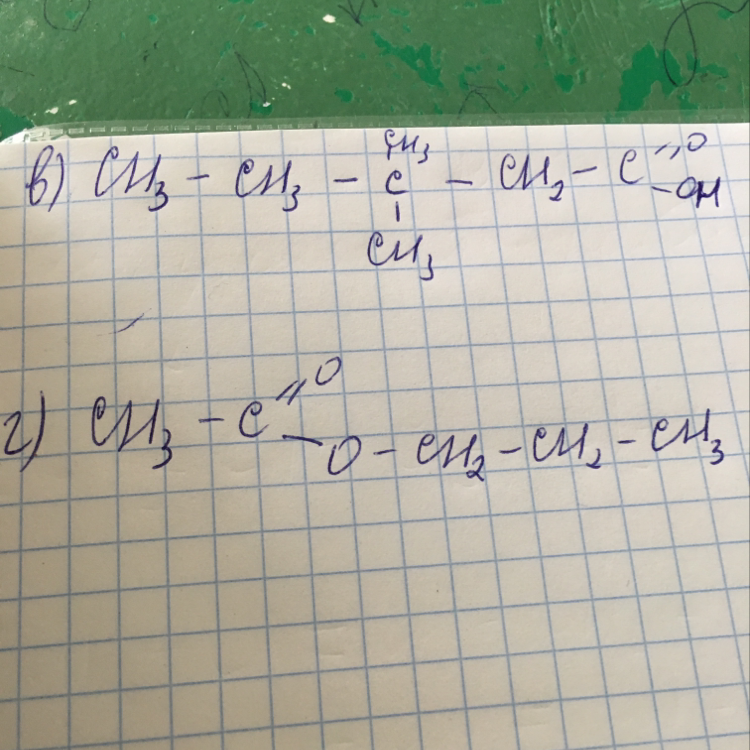 CH3
в) CH3 - CH3 - C - CH2 - C =O
-OH
CH3
г) CH3 - C =O
- O - CH2 - CH2 - CH3